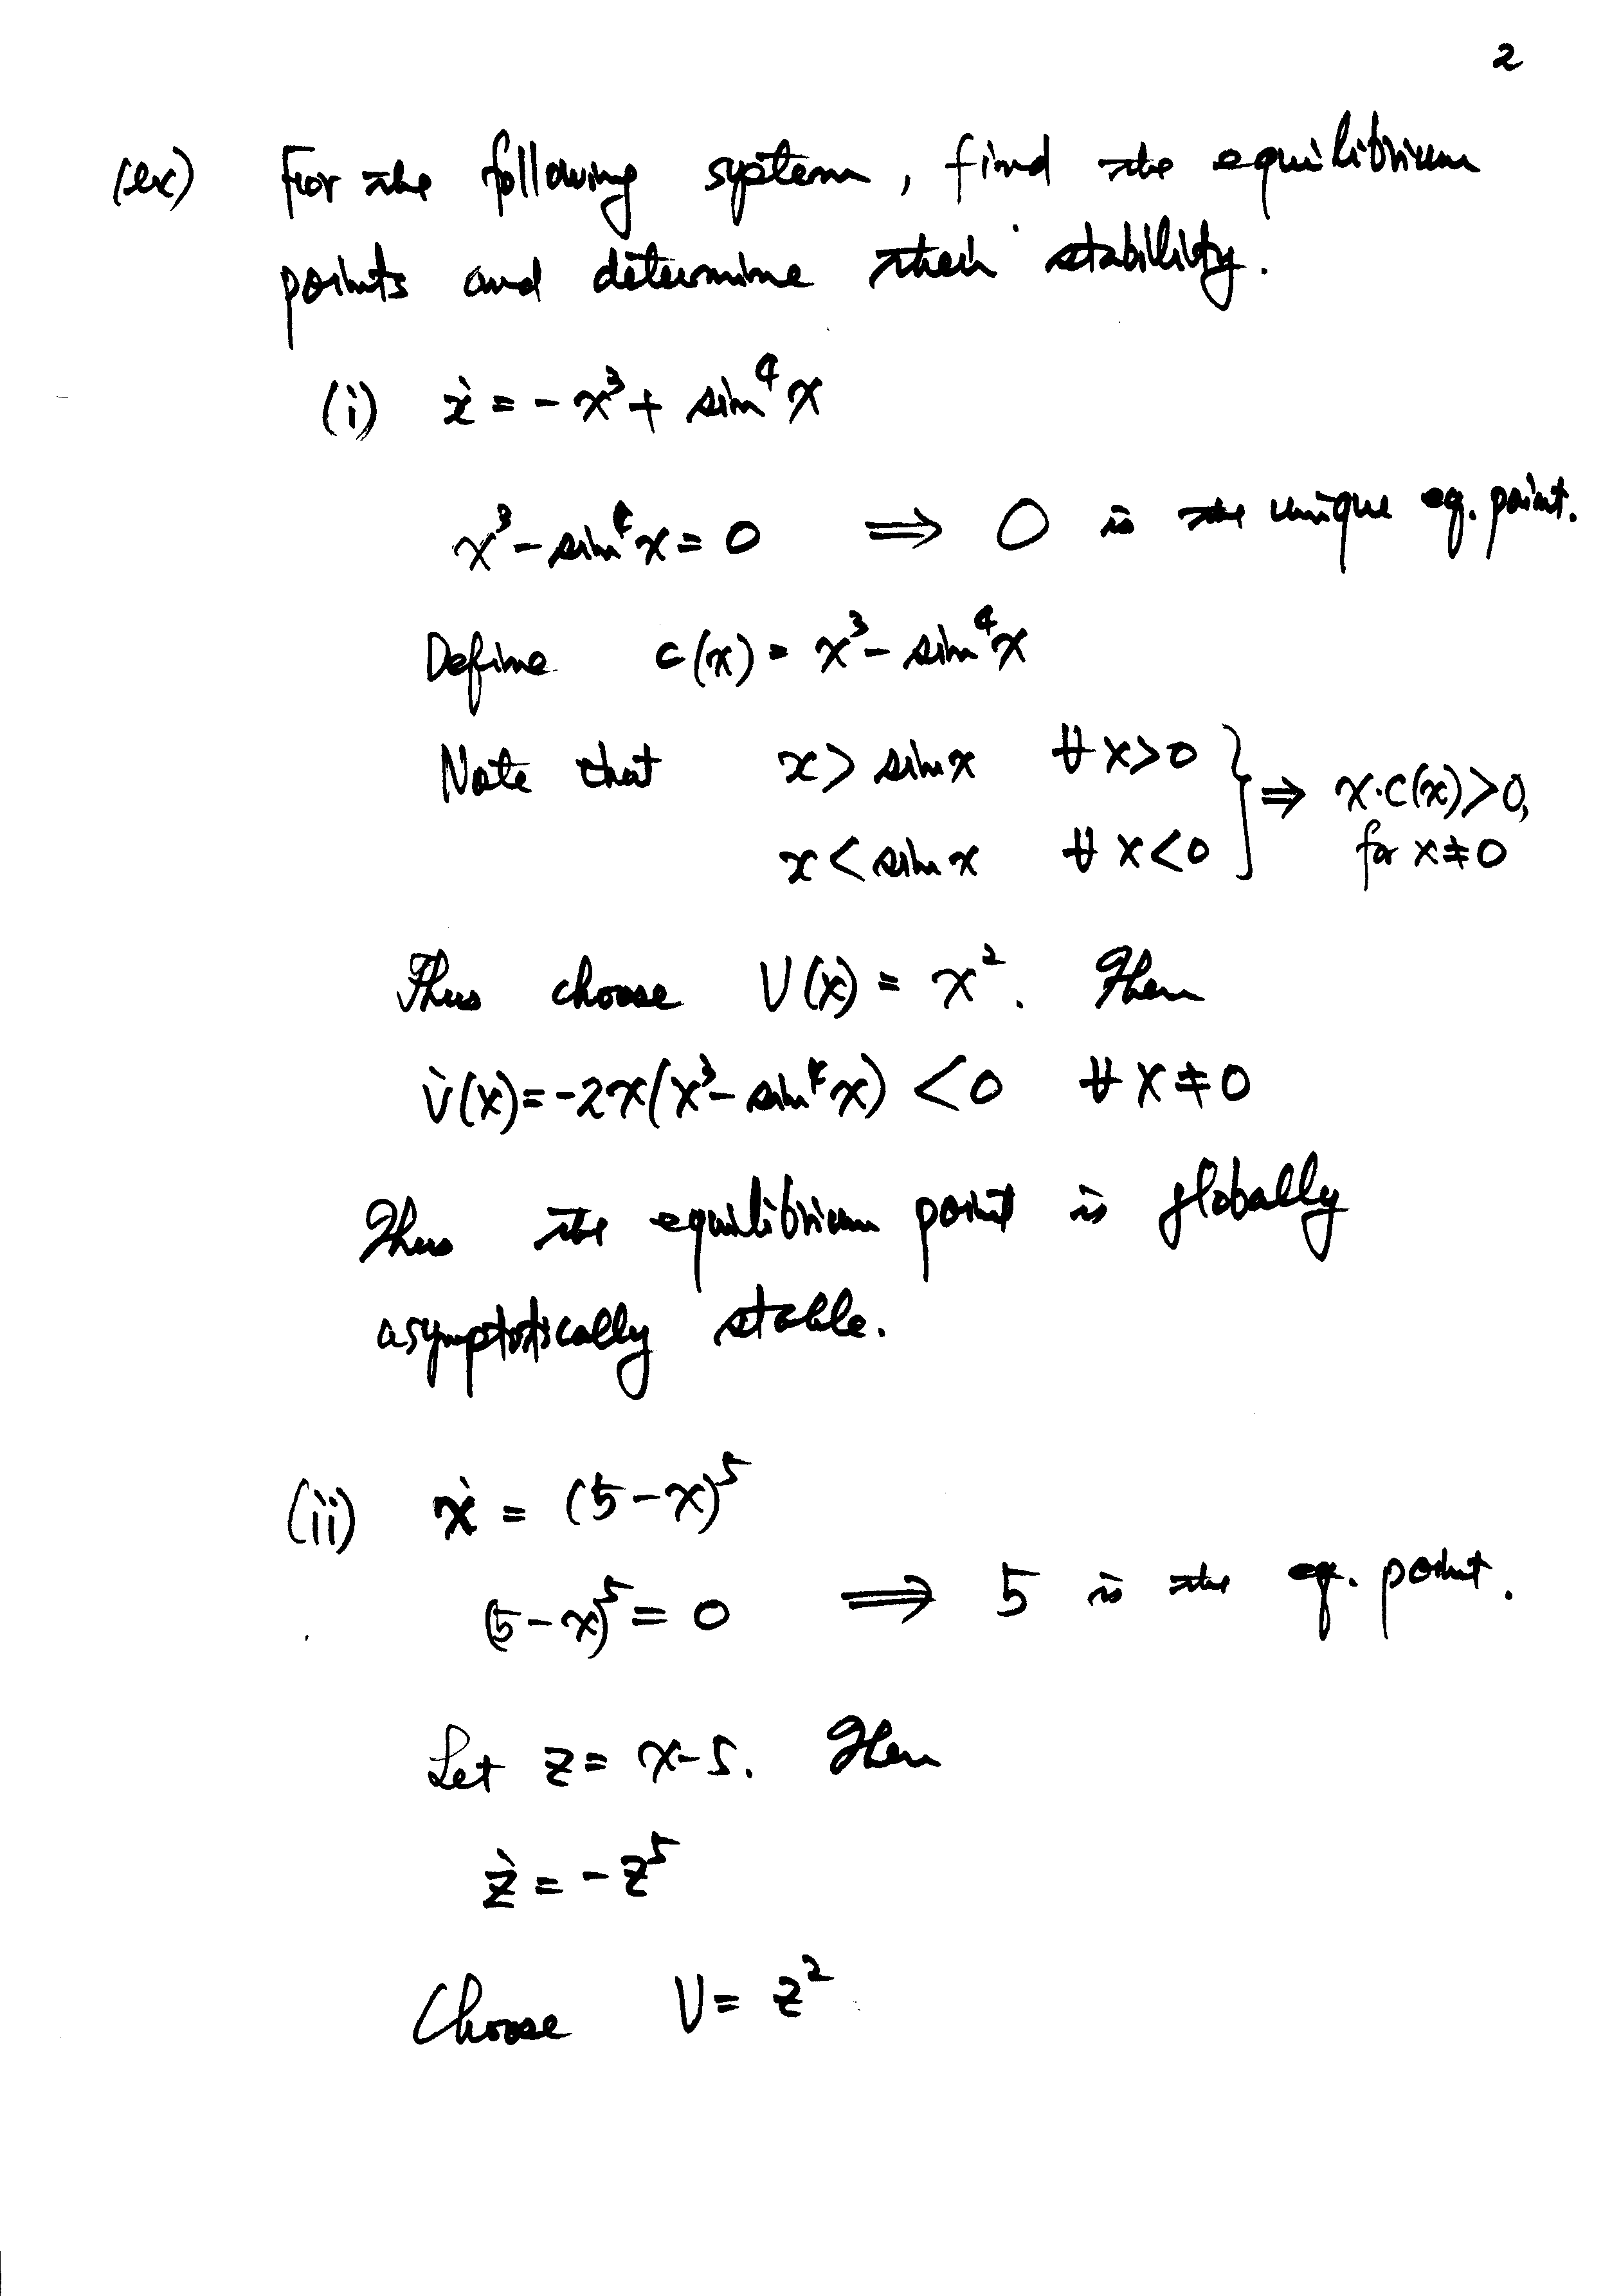 2
(ex) For the following system, find the equilibrium
points and determine their stability.
(i) ẋ = - x³ + sin⁴ x
x³ - sin⁴ x = 0 ⟹ 0 is the unique eq. point.
Define c(x) = x³ - sin⁴ x
Note that x > sin x ∀ x > 0
x < sin x ∀ x < 0 } ⇒ x·c(x) > 0, for x ≠ 0
Thus choose V(x) = x². Then
V̇(x) = -2x(x³ - sin⁴ x) < 0 ∀ x ≠ 0
Thus the equilibrium point is globally
asymptotically stable.
(ii) ẋ = (5 - x)⁵
(5 - x)⁵ = 0 ⟹ 5 is the eq. point.
Let z = x - 5. Then
ż = - z⁵
Choose V = z²